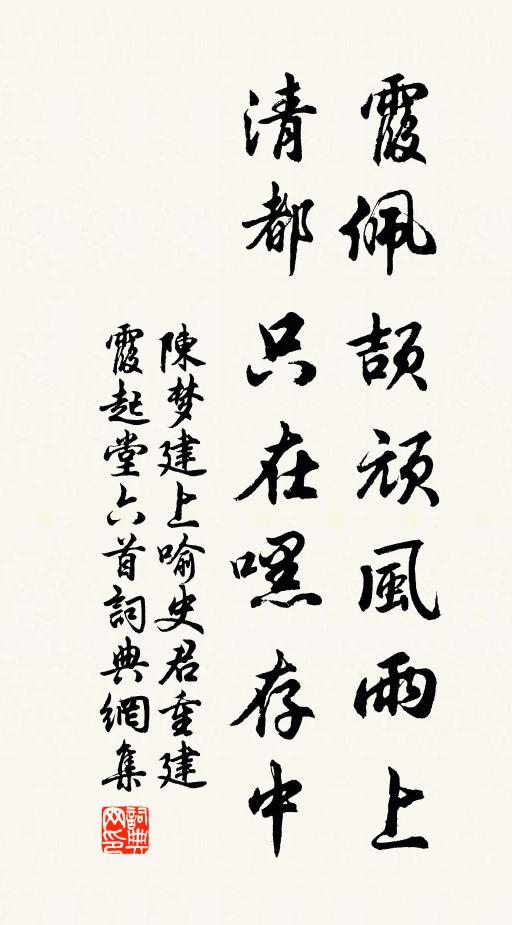 霞佩頡頏風雨上
清都只在嘿存中
陳梦建上喻史君重建
霞起堂六首詞典網集
詞典网印